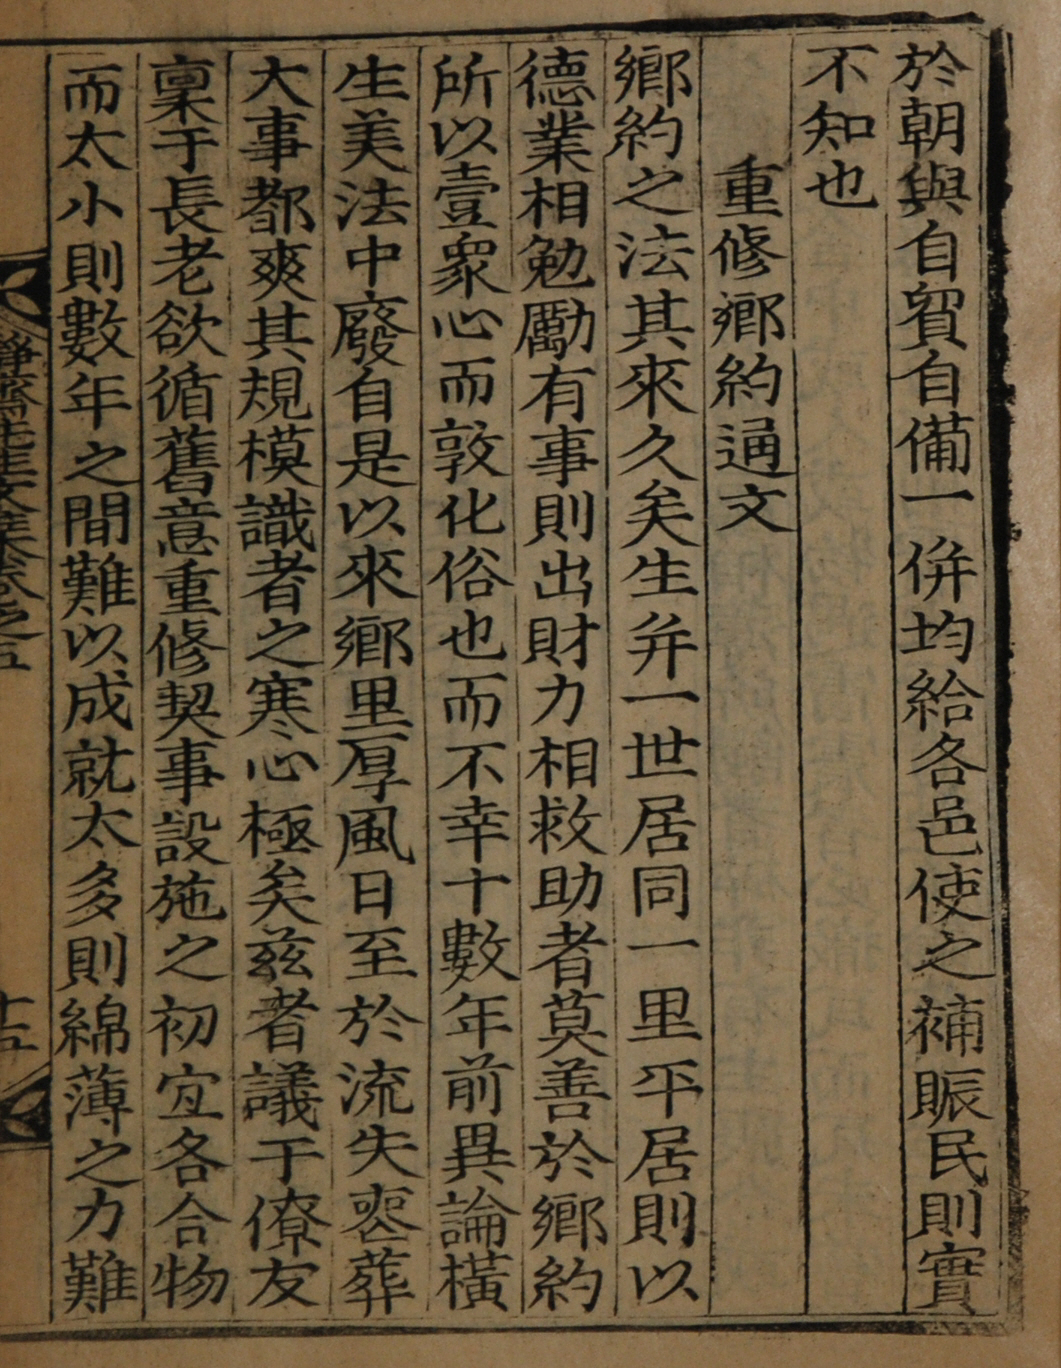 於朝與自貿自備一倂均給各邑使之補賑民則實
不知也
重修鄕約通文
鄕約之法其來久矣生并一世居同一里平居則以
德業相勉勵有事則出財力相救助者莫善於鄕約
所以壹衆心而敦化俗也而不幸十數年前異論橫
生美法中廢自是以來鄕里厚風日至於流失喪葬
大事都爽其規模識者之寒心極矣玆者議于僚友
稟于長老欲循舊意重修契事設施之初宜各合物
而太小則數年之間難以成就太多則綿薄之力難
靜齋先生文集卷之五
十五